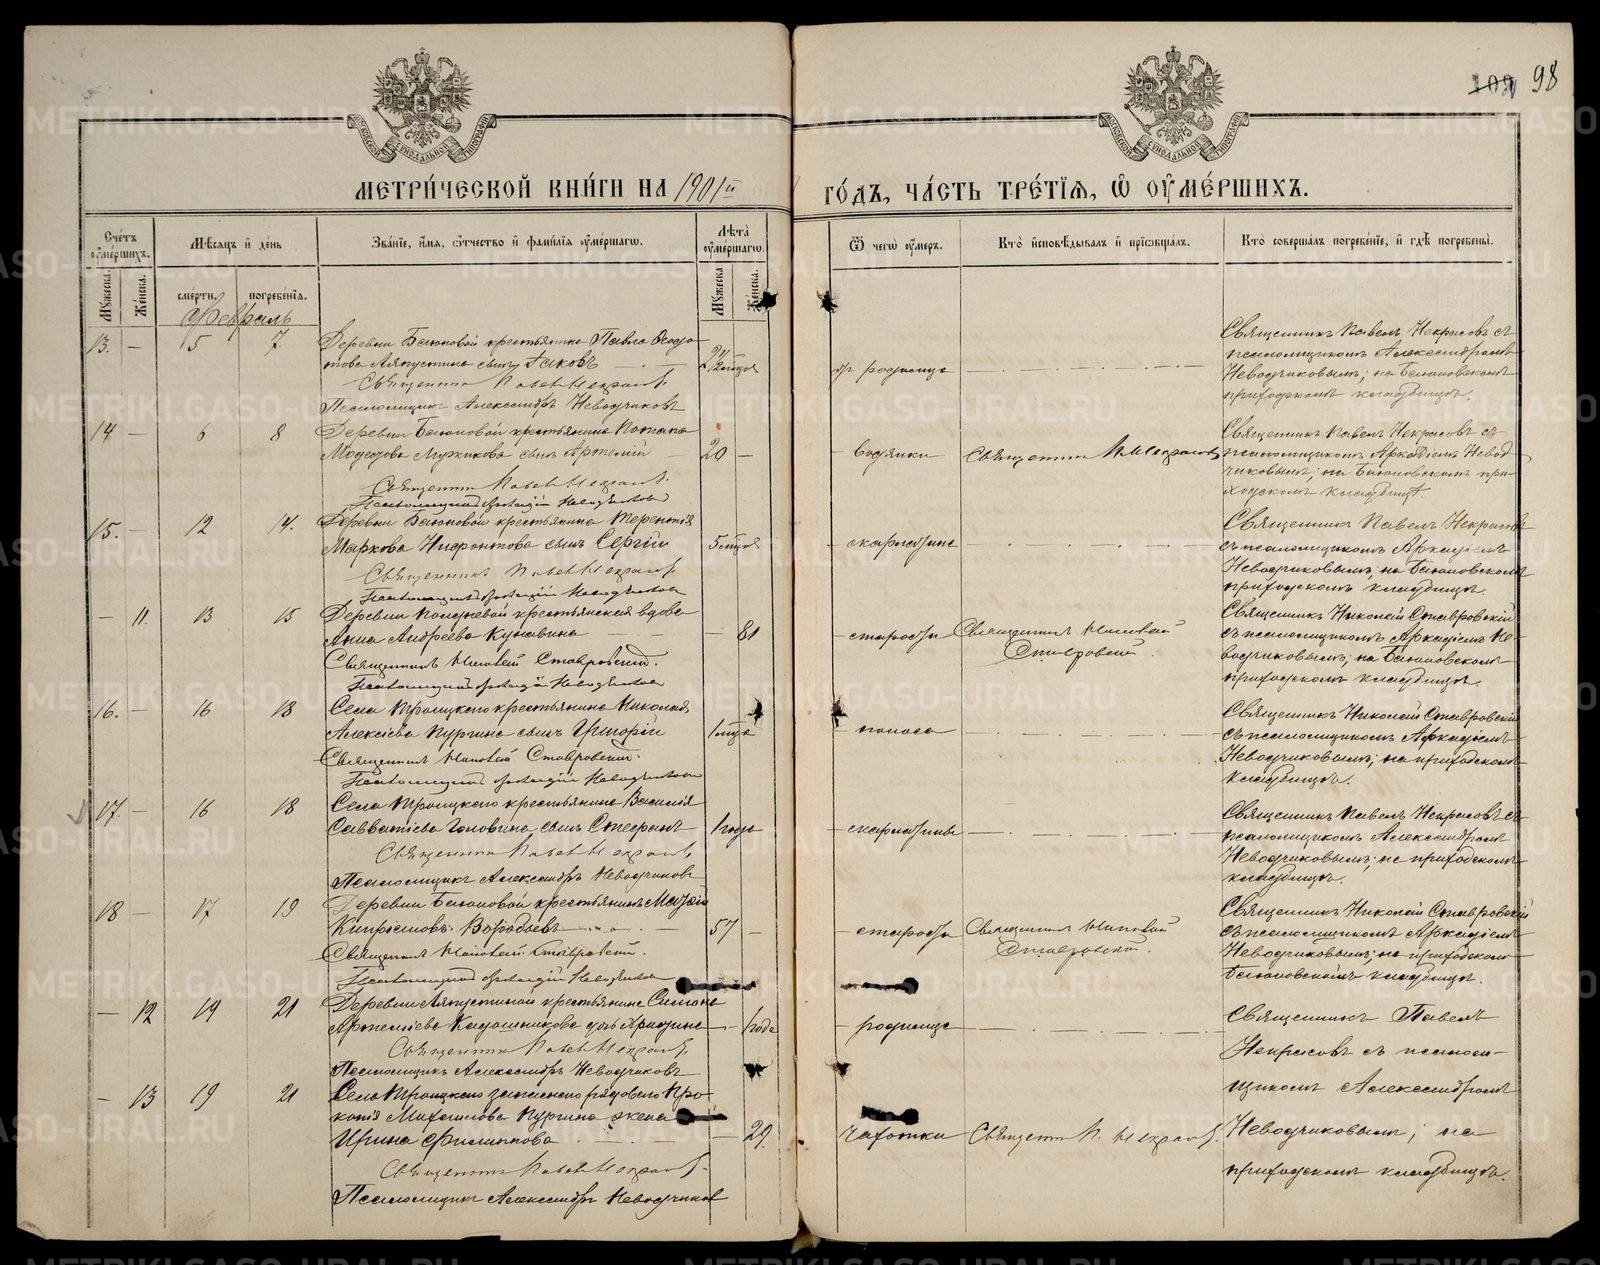 109 98
МЕТРИ́ЧЕСКОЙ КНИ́ГИ НА 1901й ГО́ДЪ, ЧА́СТЬ ТРЕ́ТІѦ, Ѡ҆ ОУ҆МЕ́РШИХЪ.
Сче́тъ оу҆ме́ршихъ.
Мꙋ́жеска.
Же́нска.
Мѣ́сѧцъ и҆ де́нь
сме́рти.
погребе́нїѧ.
Зва́нїе, и҆́мѧ, ѻ҆́тчество и҆ фами́лїѧ оу҆ме́ршагѡ.
Лѣ́та оу҆ме́ршагѡ.
Мꙋ́жеска
Же́нска.
Ѿ чегѡ̀ оу҆́меръ.
Кто̀ и҆сповѣ́дывалъ и҆ прїѡбща́лъ.
Кто̀ соверша́лъ погребе́нїе, и҆ гдѣ̀ погребены̀.
Февраль
13. — 5 7 Деревни Баюновой крестьянина Павла Ѳедо-
това Ляпустина сынъ Іаковъ 2 1/2 мѣсяц.
Священникъ Павелъ Некрасовъ
Псаломщикъ Александръ Неводчиковъ
от родимца
Священникъ Павелъ Некрасовъ съ
псаломщикомъ Александромъ
Неводчиковымъ; на Баюновскомъ
приходскомъ кладбищѣ.
14. — 6 8 Деревни Баюновой крестьянина Потапа
Мужикова сынъ Артемій 20 —
Священникъ Павелъ Некрасовъ
Псаломщикъ Аркадій Неводчиковъ
водянки
Священникъ П. Некрасовъ
Священникъ Павелъ Некрасовъ съ
псаломщикомъ Аркадіемъ Невод-
чиковымъ; на Баюновскомъ при-
ходскомъ кладбищѣ.
15. — 12 14. Деревни Баюновой крестьянина Терентія
Маркова Нифонтова сынъ Сергій 5 мѣсяц.
Священникъ Павелъ Некрасовъ
Псаломщикъ Аркадій Неводчиковъ
скарлатины
Священникъ Павелъ Некрасовъ
съ псаломщикомъ Аркадіемъ
Неводчиковымъ; на Баюновскомъ
приходскомъ кладбищѣ.
— 11. 13 15 Деревни крестьянская вдова
Анна Андреева Кунавина — 81
Священникъ Николай Ставровскій.
Псаломщикъ Аркадій Неводчиковъ
старости
Священникъ Николай
Ставровскій.
Священникъ Николай Ставровскій
съ псаломщикомъ Аркадіемъ Не-
водчиковымъ; на Баюновскомъ
приходскомъ кладбищѣ.
16. — 16 18 Села Троицкаго крестьянина Николая
Алексіева Пургина сынъ Григорій 1 мѣсяца
Священникъ Николай Ставровскій.
Псаломщикъ Аркадій Неводчиковъ
поноса
Священникъ Николай Ставровскій
съ псаломщикомъ Аркадіемъ
Неводчиковымъ; на приходскомъ
кладбищѣ.
17. — 16 18 Села Троицкаго крестьянина Василія
Савватіева Головина сынъ Стефанъ 1 года
Священникъ Павелъ Некрасовъ
Псаломщикъ Александръ Неводчиковъ
скарлатины
Священникъ Павелъ Некрасовъ съ
псаломщикомъ Александромъ
Неводчиковымъ; на приходскомъ
кладбищѣ.
18 — 17 19 Деревни Баюновой крестьянинъ Матѳій
Кипріановъ Воробьевъ 57 —
Священникъ Николай Ставровскій.
Псаломщикъ Аркадій Неводчиковъ
старости
Священникъ Николай
Ставровскій.
Священникъ Николай Ставровскій
съ псаломщикомъ Аркадіемъ
Неводчиковымъ; на приходскомъ
Баюновскомъ кладбищѣ.
— 12 19 21 Деревни Ляпустиной крестьянина Симона
Артеміева Калашникова дочь Христина — 1 года
Священникъ Павелъ Некрасовъ
Псаломщикъ Александръ Неводчиковъ
родимца
Священникъ Павелъ
Некрасовъ съ псалом-
щикомъ Александромъ
— 13 19 21 Села Троицкаго запаснаго рядоваго Про-
копія Михаилова Пургина жена
Ирина Филиппова — 29.
Священникъ Павелъ Некрасовъ
Псаломщикъ Александръ Неводчиковъ
чахотки
Священникъ П. Некрасовъ
Неводчиковымъ; на
приходскомъ кладбищѣ.
METRIKI.GASO-URAL.RU